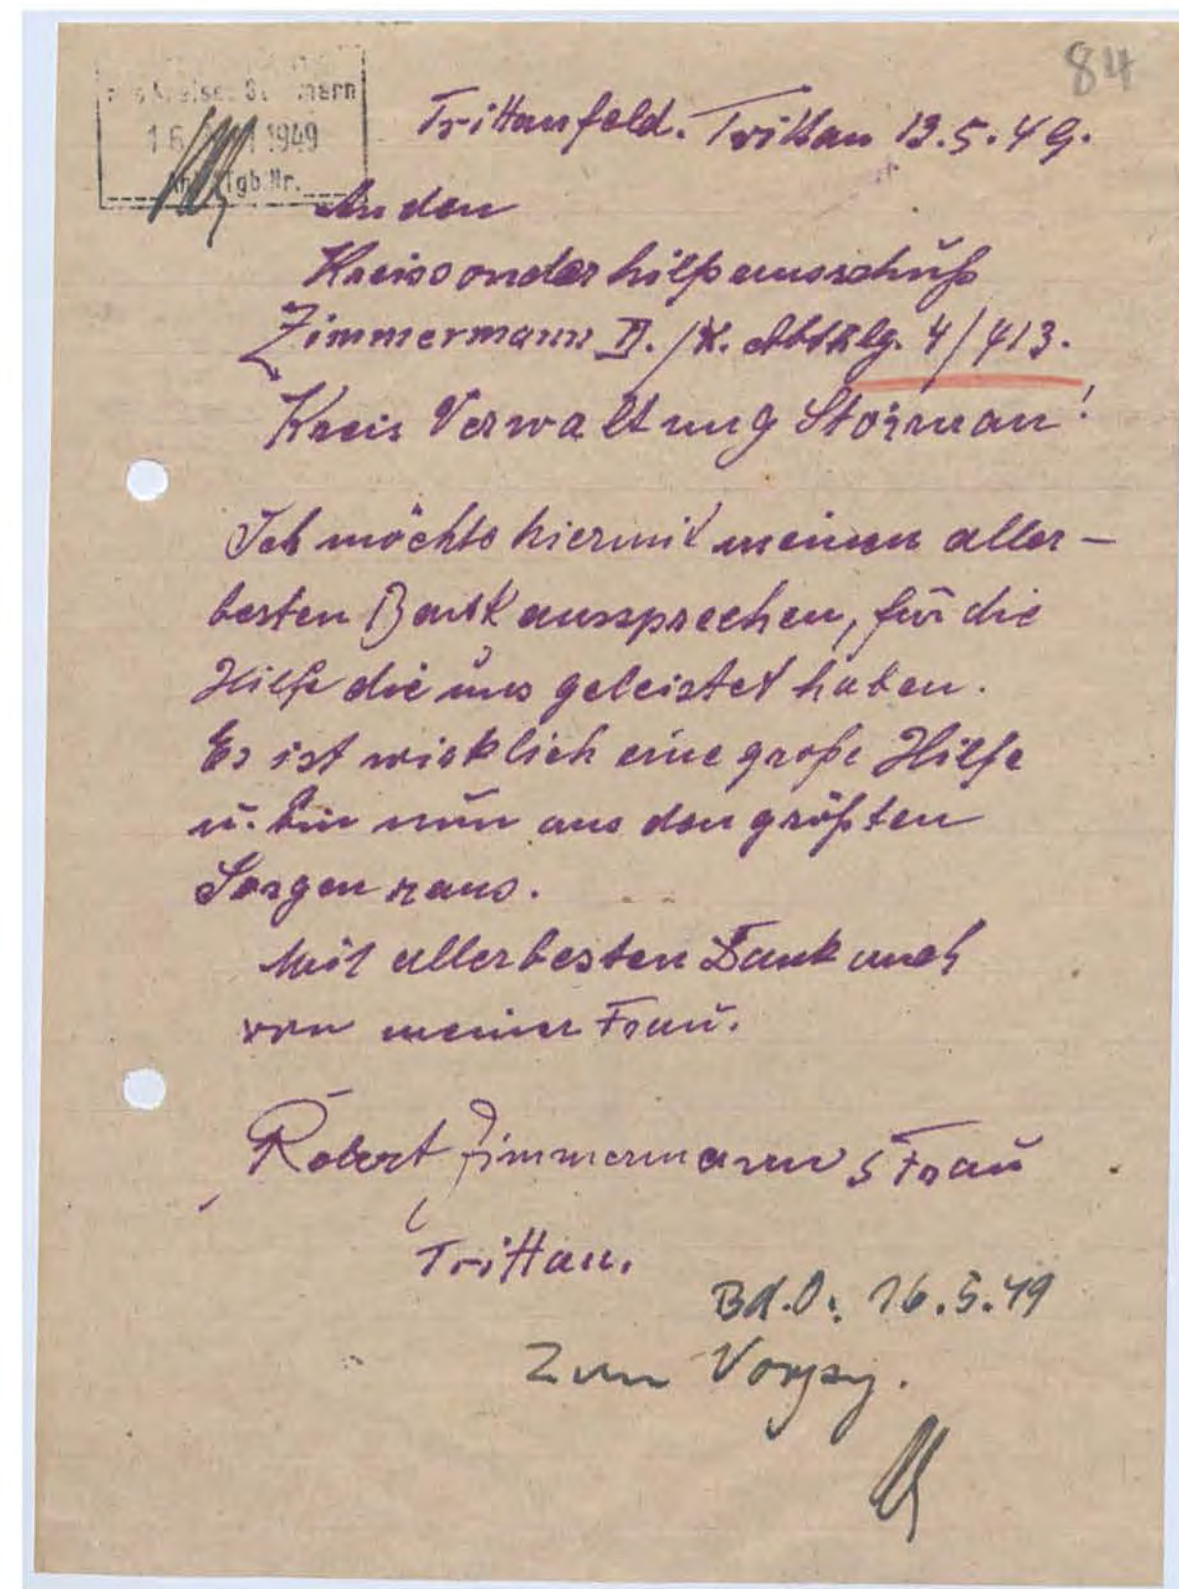 84
16. 1949
Tgb.Nr.
Trittaufeld. Trittau 13.5.49.
An den
Kreissonderhilfsausschuß
Zimmermann II. /K. Abtklg. 4/413.
Kreis Verwaltung Storman!
Ich möchte hiermit meinen aller-
besten Dank aussprechen, für die
Hilfe die uns geleistet haben.
Es ist wirklich eine große Hilfe
u. bin nun aus den größten
Sorgen raus.
Mit allerbesten Dank auch
von meiner Frau.
Robert Zimmermann & Frau
Trittau.
Bd.O. 16.5.49
Zum Vorgang.